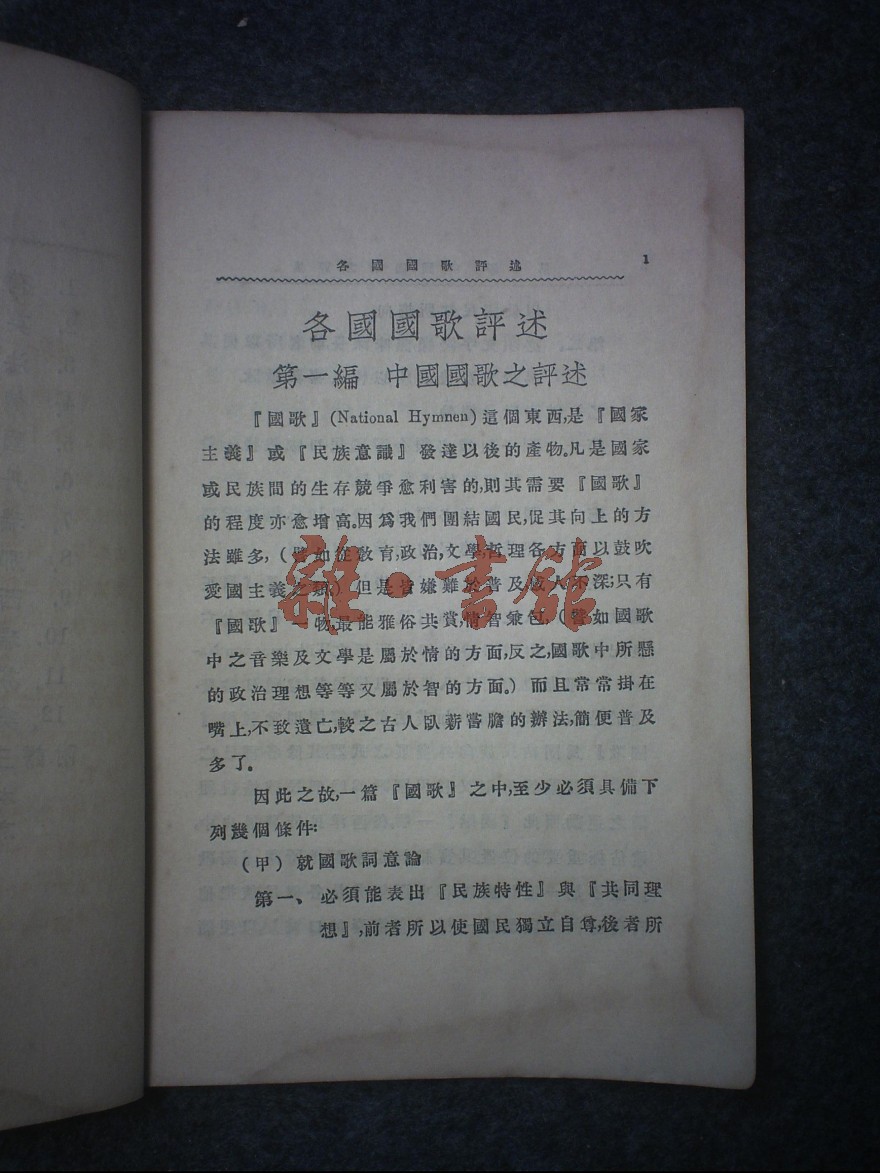 各國國歌評述 1
各國國歌評述
第一編 中國國歌之評述
『國歌』(National Hymnen)這個東西,是『國家
主義』或『民族意識』發達以後的產物。凡是國家
或民族間的生存競爭愈利害的,則其需要『國歌』
的程度亦愈增高。因爲我們團結國民,促其向上的方
法雖多,(譬如從敎育,政治,文學,哲理各方面以鼓吹
愛國主義之類)但是皆嫌難於普及,感人不深;只有
『國歌』一物,最能雅俗共賞,情智兼包,(譬如國歌
中之音樂及文學是屬於情的方面,反之,國歌中所懸
的政治理想等等又屬於智的方面。)而且常常掛在
嘴上,不致遺亡,較之古人臥薪嘗膽的辦法,簡便普及
多了。
因此之故,一篇『國歌』之中,至少必須具備下
列幾個條件:
(甲)就國歌詞意論
第一、必須能表出『民族特性』與『共同理
想』,前者所以使國民獨立自尊,後者所
雜·書館